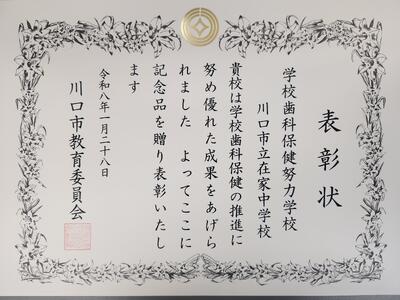 表彰状
学校歯科保健努力学校
川口市立在家中学校
貴校は学校歯科保健の推進に
努め優れた成果をあげら
れました　よってここに
記念品を贈り表彰いたし
ます
令和八年一月二十八日
川口市教育委員会